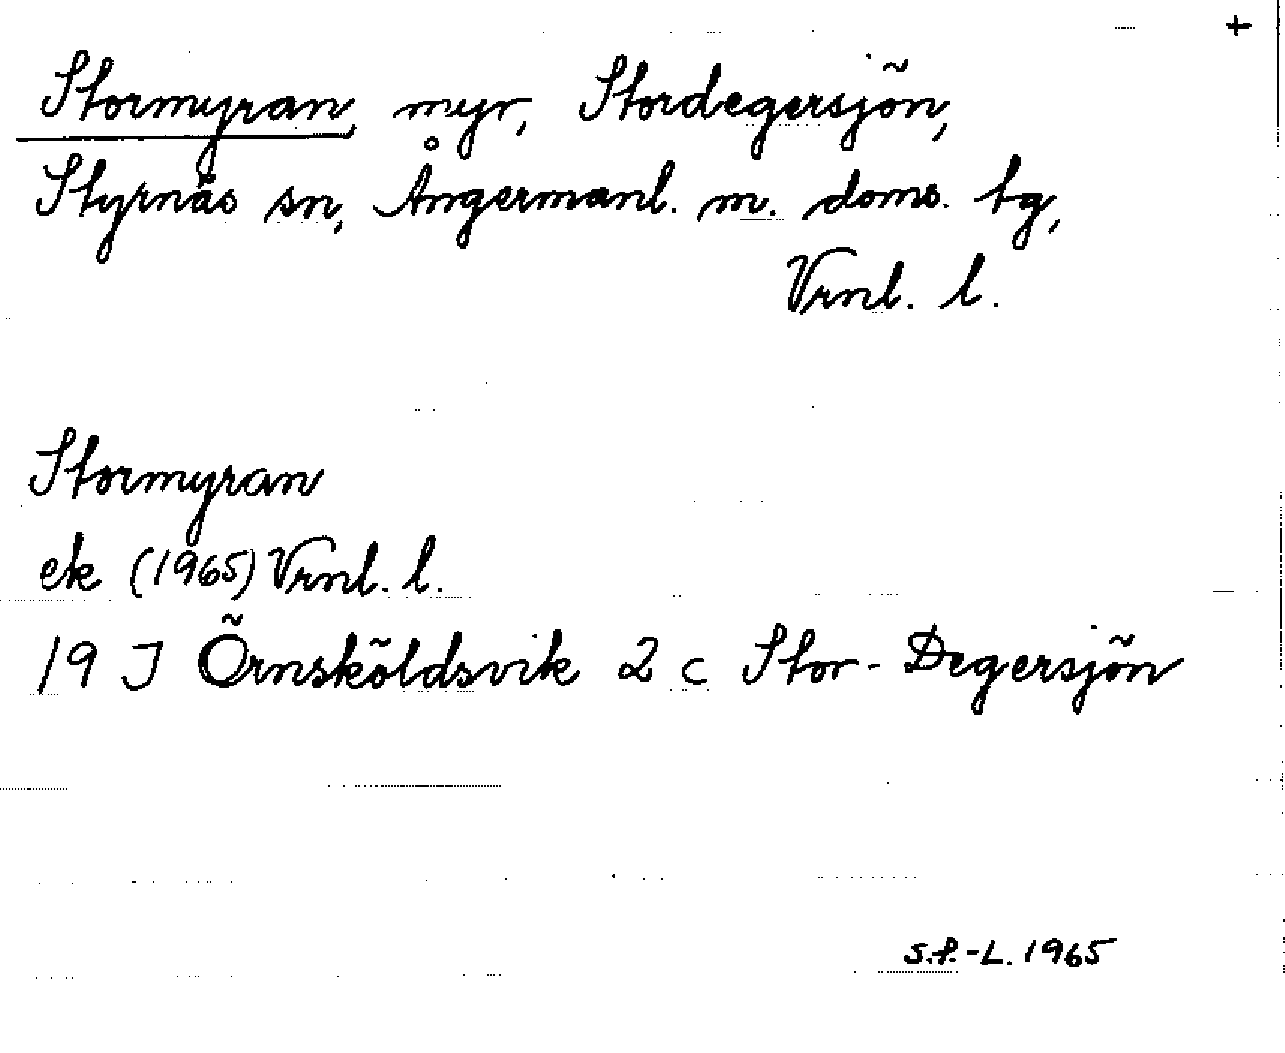 +
Stormyran, myr, Stordegersjön,
Styrnäs sn, Ångermanl. m. doms. tg,
Vrnl. l.
Stormyran
ek (1965) Vrnl. l.
19 J Örnsköldsvik 2 c Stor-Degersjön
S.F.-L. 1965